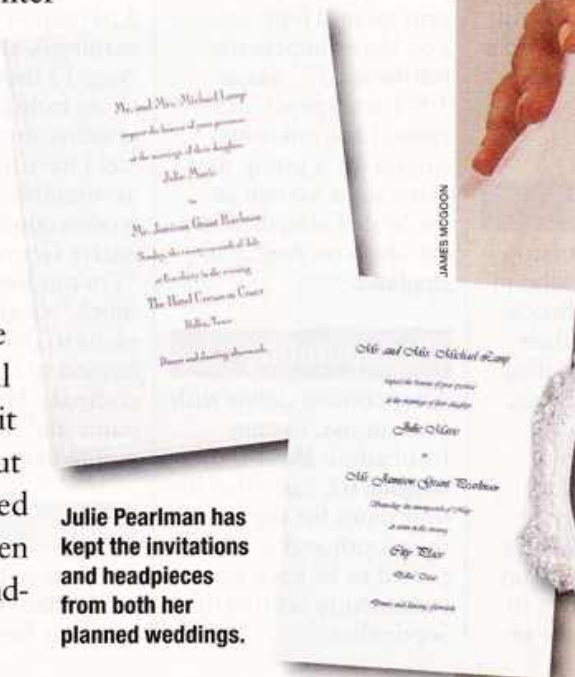 nter
Mr. and Mrs. Michael
request the honour of your presence
at the marriage of their daughter
Julie Marie
to
Mr. Jamison Grant Pearlman
Sunday, the of July
at in the evening
The Hotel Crescent Court
Dallas, Texas
Dinner and dancing afterwards
JAMES MCGOON
e
l
it
ut
ed
en
d-
Mr. and Mrs. Michael
request the honour of your presence
at the marriage of their daughter
Julie Marie
to
Mr. Jamison Grant Pearlman
Saturday, the
in the evening
City Place
Dallas, Texas
Dinner and dancing afterwards
Julie Pearlman has
kept the invitations
and headpieces
from both her
planned weddings.